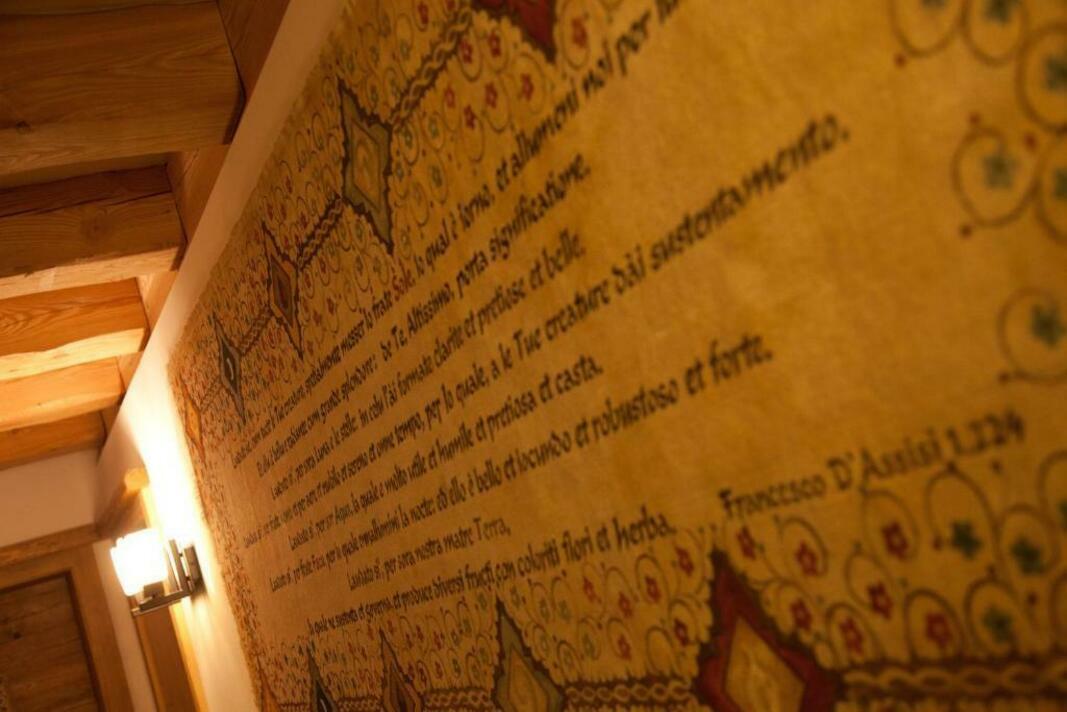 Laudato sì, cum tucte le Tue creature, spetialmente messer lo frate Sole, lo qual è iorno, et allumeni noi per
Et ellu è bellu e radiante cum grande splendore: de Te, Altissimo, porta significatione.
Laudato sì, per sora Luna e le stelle: in celu l'ài formate clarite et pretiose et belle.
Laudato sì, per frate Vento et per aere et nubilo et sereno et onne tempo, per lo quale, a le Tue creature dài sustentamento.
Laudato sì, per sor Aqua, la quale è molto utile et humile et pretiosa et casta.
Laudato sì, per frate Focu, per lo quale ennallumini la nocte: ed ello è bello et iocundo et robustoso et forte.
Laudato sì, per sora nostra matre Terra,
la quale ne sustenta et governa, et produce diversi fructi con coloriti flori et herba.
Francesco D'Assisi 1.224